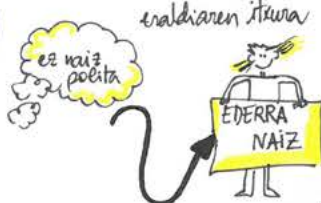 esaldiaren itxura
ez naiz
polita
EDERRA
NAIZ